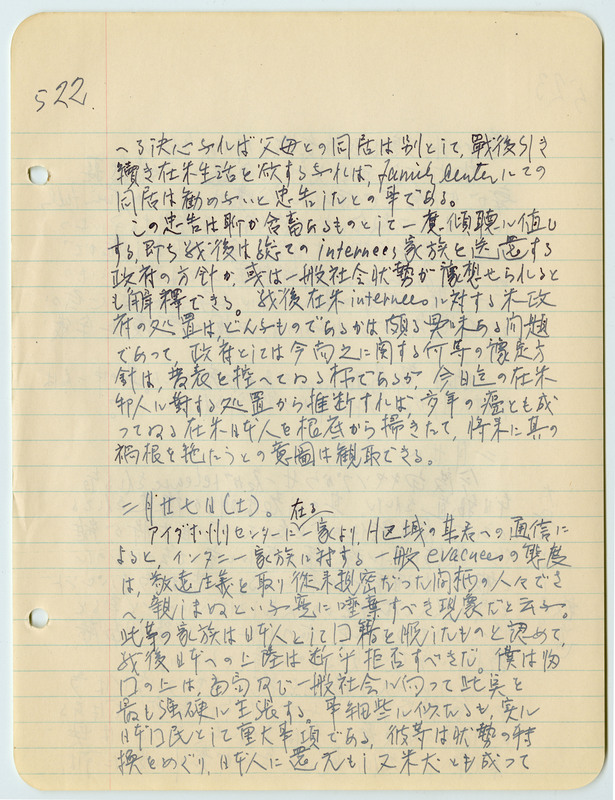 522.
へる決心ならば父母との同居は別として、戰後引き
續き在米生活を欲するならば、family centerにての
同居は勧めないと忠告したとの事である。
この忠告は聊か含蓄あるものとして一度傾聽に値し
する、即ち戦後は総てのinternees家族を送還する
政府の方針か、或は一般社会状勢が豫想せられると
も解釋できる。戦後在米interneesに対する米政
府の処置は、どんなものであるかは頗る興味ある問題
であって、政府としては今尚之に関する何等の豫定方
針は、発表を控へてゐる様であるが、今日迄の在米
邦人に對する処置から推断すれば、多年の癌とも成
ってゐる在米日本人を根底から掃きたて、将来に其の
禍根を絶たうとの意圖は観取できる。
二月廿七日(土)。
アイダホ州センターに在る一家より、H区域の某君への通信に
よると、インタニー家族に対する一般evacueesの態度
は、敬遠主義を取り従来親密だった間柄の人々でさ
へ、親しまぬといふ実に唾棄すべき現象だと云ふ。
此等の家族は日本人として口籍を脱したものと認めて、
戦後日本への上陸は断乎拒否すべきだ。僕は帰
口の上は、当局及び一般社会に向って此実を
最も強硬に主張する。事細些に似たるも、実に
日本口民として重大事項である、彼等は状勢の転
換をめぐり、日本人に還元もし又米犬とも成って